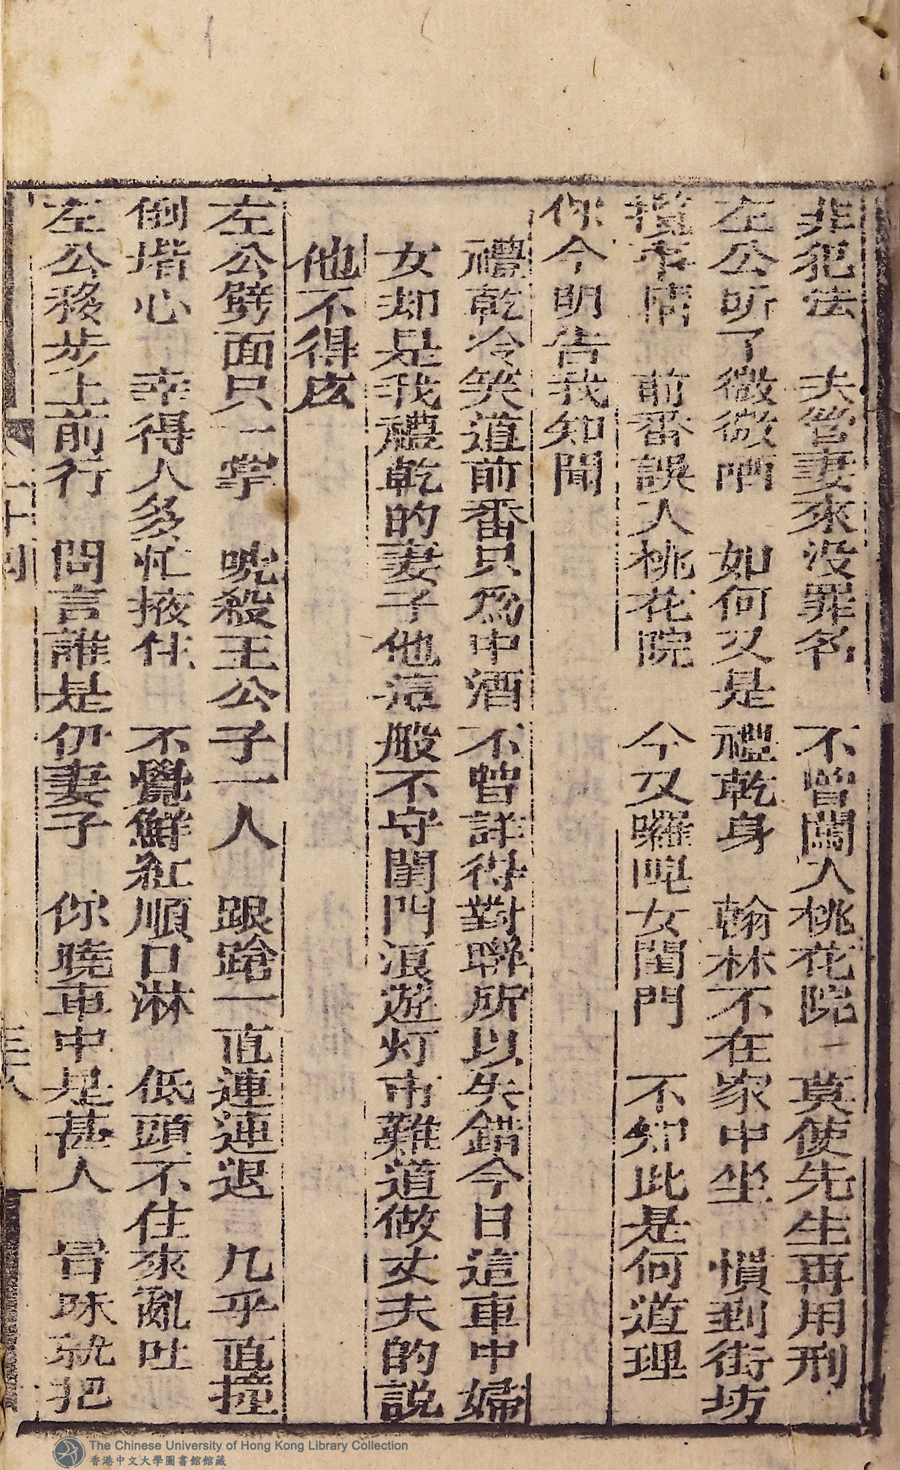 非犯法　夫管妻來没罪名　不曾闖入桃花院　莫使先生再用刑
左公听了微微哂　如何又是禮乾身　翰林不在家中坐　慣到街坊
攬事情　前番誤入桃花院　今又囉唣女閨門　不知此是何道理
你今明告我知聞
禮乾冷笑道前番只為中酒不曾詳得對聯所以失錯今日這車中婦
女却是我禮乾的妻子他這般不守閨門浪遊灯市難道做丈夫的説
他不得庅
左公劈面只一掌　唬殺王公子一人　踉蹌一直連連退　几乎直撞
倒堦心　幸得人多忙掖住　不覺鮮紅順口淋　低頭不住來亂吐
左公移步上前行　問言誰是伊妻子　你曉車中是甚人　冒昧就把
三六
The Chinese University of Hong Kong Library Collection
香港中文大學圖書館館藏